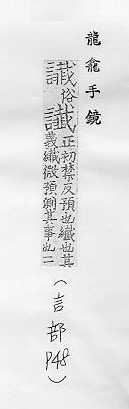 龍龕手鏡
䜟俗讖正初禁反預也纖也其
義纖微預詶其事也二
(言部
P48)